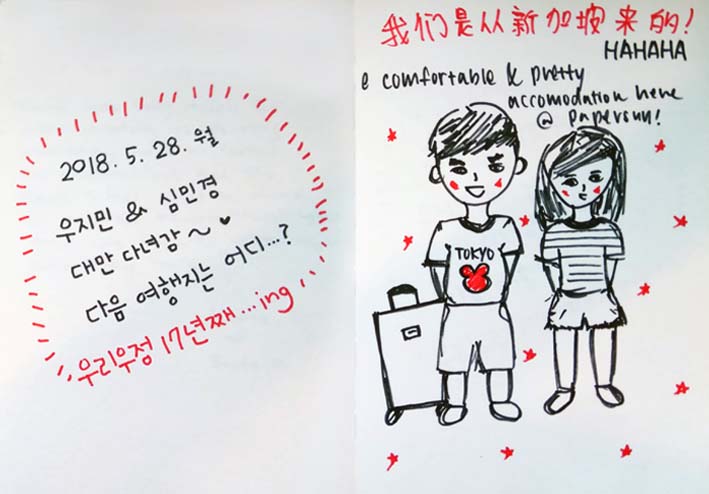 2018. 5. 28. 월
우지민 & 심민경
대만 다녀감~♥
다음 여행지는 어디...?
우리우정 17년째...ing
我们是从新加坡来的!
HAHAHA
e comfortable & pretty
accomodation here
@ papersun!
TOKYO